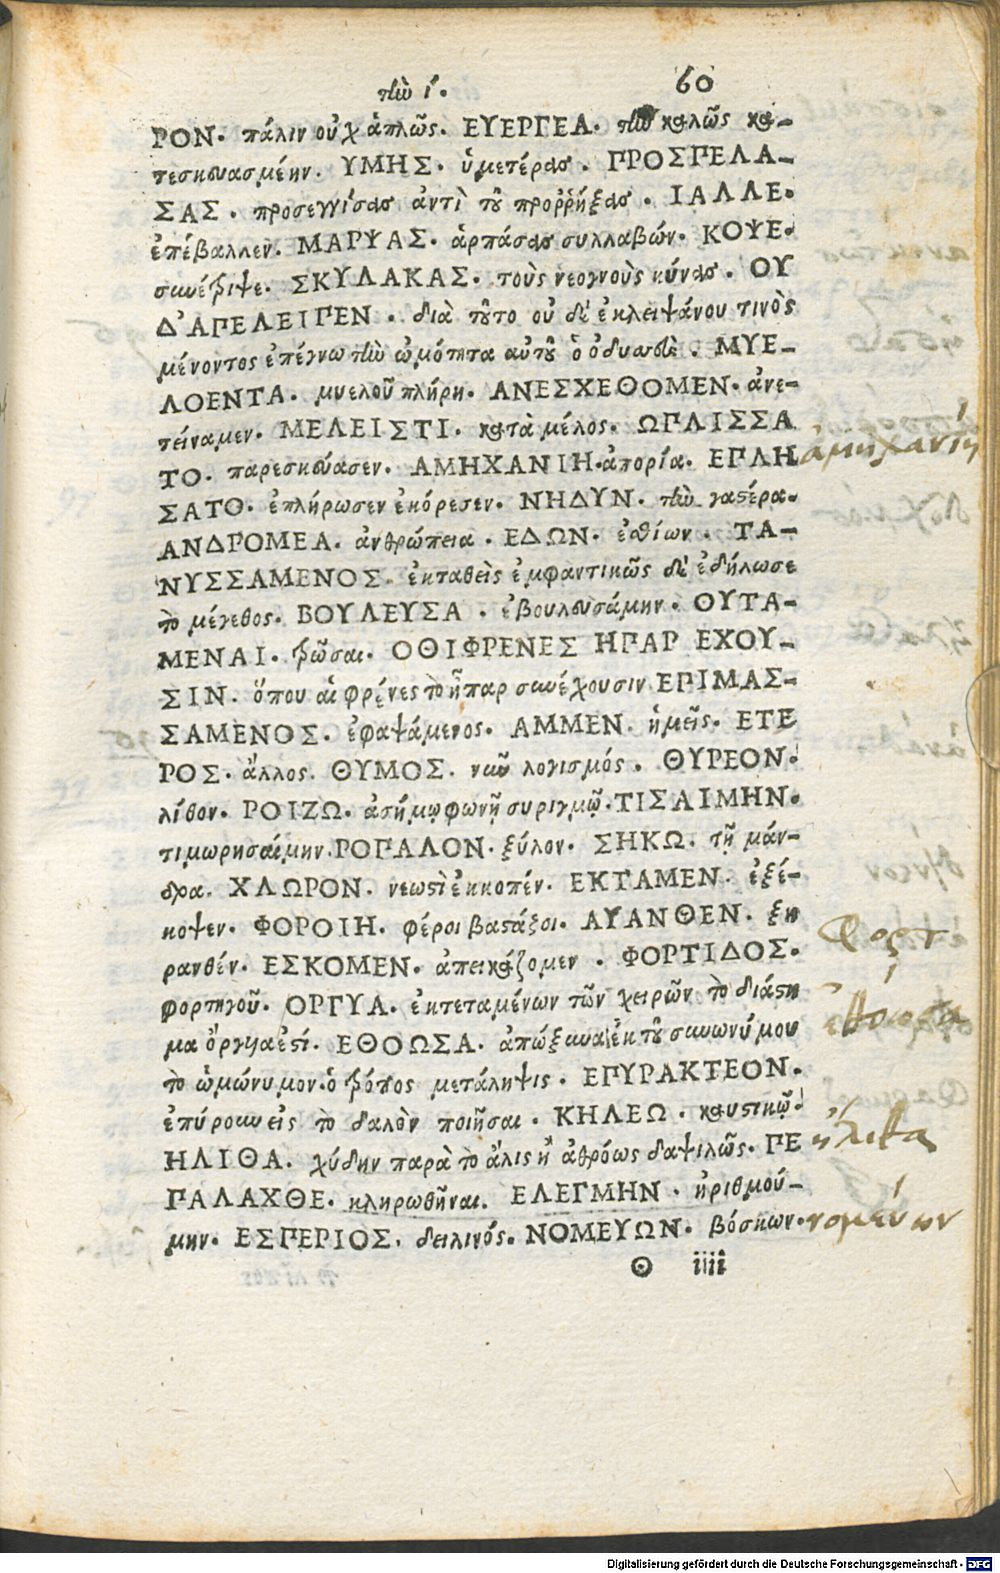 τὴν ί. 60
ΡΟΝ· πάλιν οὐχ ἁπλῶς. ΕΥΕΡΓΕΑ. τὴν καλῶς κα-
τεσκευασμένην. ΥΜΗΣ. ὑμετέρας. ΠΡΟΣΠΕΛΑ-
ΣΑΣ. προσεγγίσας ἀντὶ τοῦ προῤῥήξας. ΙΑΛΛΕ.
ἐπέβαλλεν. ΜΑΡΨΑΣ. ἁρπάσας συλλαβών. ΚΟΨΕ.
συνέτριψε. ΣΚΥΛΑΚΑΣ. τοὺς νεογνοὺς κύνας. ΟΥ
Δ'ΑΠΕΛΕΙΠΕΝ. διὰ τοῦτο οὐ δὲ ἐκλειψάνου τινὸς
μένοντος ἐπέγνω τὴν ὠμότητα αὐτοῦ ὁ ὀδυσσεὺς. ΜΥΕ-
ΛΟΕΝΤΑ. μυελοῦ πλήρη. ΑΝΕΣΧΕΘΟΜΕΝ. ἀνε-
τείναμεν. ΜΕΛΕΙΣΤΙ. κατὰ μέλος. ΩΠΛΙΣΣΑ
ΤΟ. παρεσκεύασεν. ΑΜΗΧΑΝΙΗ. ἀπορία. ΕΠΛΗ ἀμηχανίη
ΣΑΤΟ. ἐπλήρωσεν ἐκόρεσεν. ΝΗΔΥΝ. τὴν γαστέρα.
ΑΝΔΡΟΜΕΑ. ἀνθρώπεια. ΕΔΩΝ. ἐσθίων. ΤΑ-
ΝΥΣΣΑΜΕΝΟΣ. ἐκταθεὶς ἐμφαντικῶς δὲ ἐδήλωσε
το μέγεθος. ΒΟΥΛΕΥΣΑ. ἐβουλευσάμην. ΟΥΤΑ-
ΜΕΝΑΙ. τρῶσαι. ΟΘΙΦΡΕΝΕΣ ΗΠΑΡ ΕΧΟΥ-
ΣΙΝ. ὅπου αἱ φρένες το ἧπαρ συνέχουσιν ΕΠΙΜΑΣ-
ΣΑΜΕΝΟΣ. ἐφαψάμενος. ΑΜΜΕΝ. ἡμεῖς. ΕΤΕ
ΡΟΣ. ἄλλος. ΘΥΜΟΣ. νῦν λογισμός. ΘΥΡΕΟΝ.
λίθον. ΡΟΙΖΩ. ἀσήμῳ φωνῇ συριγμῷ. ΤΙΣΑΙΜΗΝ.
τιμωρησαίμην. ΡΟΠΑΛΟΝ. ξύλον. ΣΗΚΩ. τῇ μάν-
δρα. ΧΛΩΡΟΝ. νεωστὶ ἐκκοπέν. ΕΚΤΑΜΕΝ. ἐξέ-
κοψεν. ΦΟΡΟΙΗ. φέροι βαστάζοι. ΑΥΑΝΘΕΝ. ξη
ρανθέν. ΕΣΚΟΜΕΝ. ἀπεικάζομεν. ΦΟΡΤΙΔΟΣ. Φορτ
φορτηγοῦ. ΟΡΓΥΑ. ἐκτεταμένων τῶν χειρῶν το διάστη
μα ὄργυα ἐστί. ΕΘΟΩΣΑ. ἀπώξυνα ἐκ τοῦ συνωνύμου ἐθόωσα
το ὁμώνυμον. ὁ τρόπος μετάληψις. ΕΠΥΡΑΚΤΕΟΝ.
ἐπύρουν εἰς το δαλὸν ποιῆσαι. ΚΗΛΕΩ. καυστικῷ.
ΗΛΙΘΑ. χύδην παρὰ το ἅλις ἢ ἀθρόως δαψιλῶς. ΠΕ ἤλιθα
ΠΑΛΑΧΘΕ. κληρωθῆναι. ΕΛΕΓΜΗΝ. ἠριθμού-
μην. ΕΣΠΕΡΙΟΣ. δειλινός. ΝΟΜΕΥΩΝ. βόσκων. νομεύων
Θ iiii